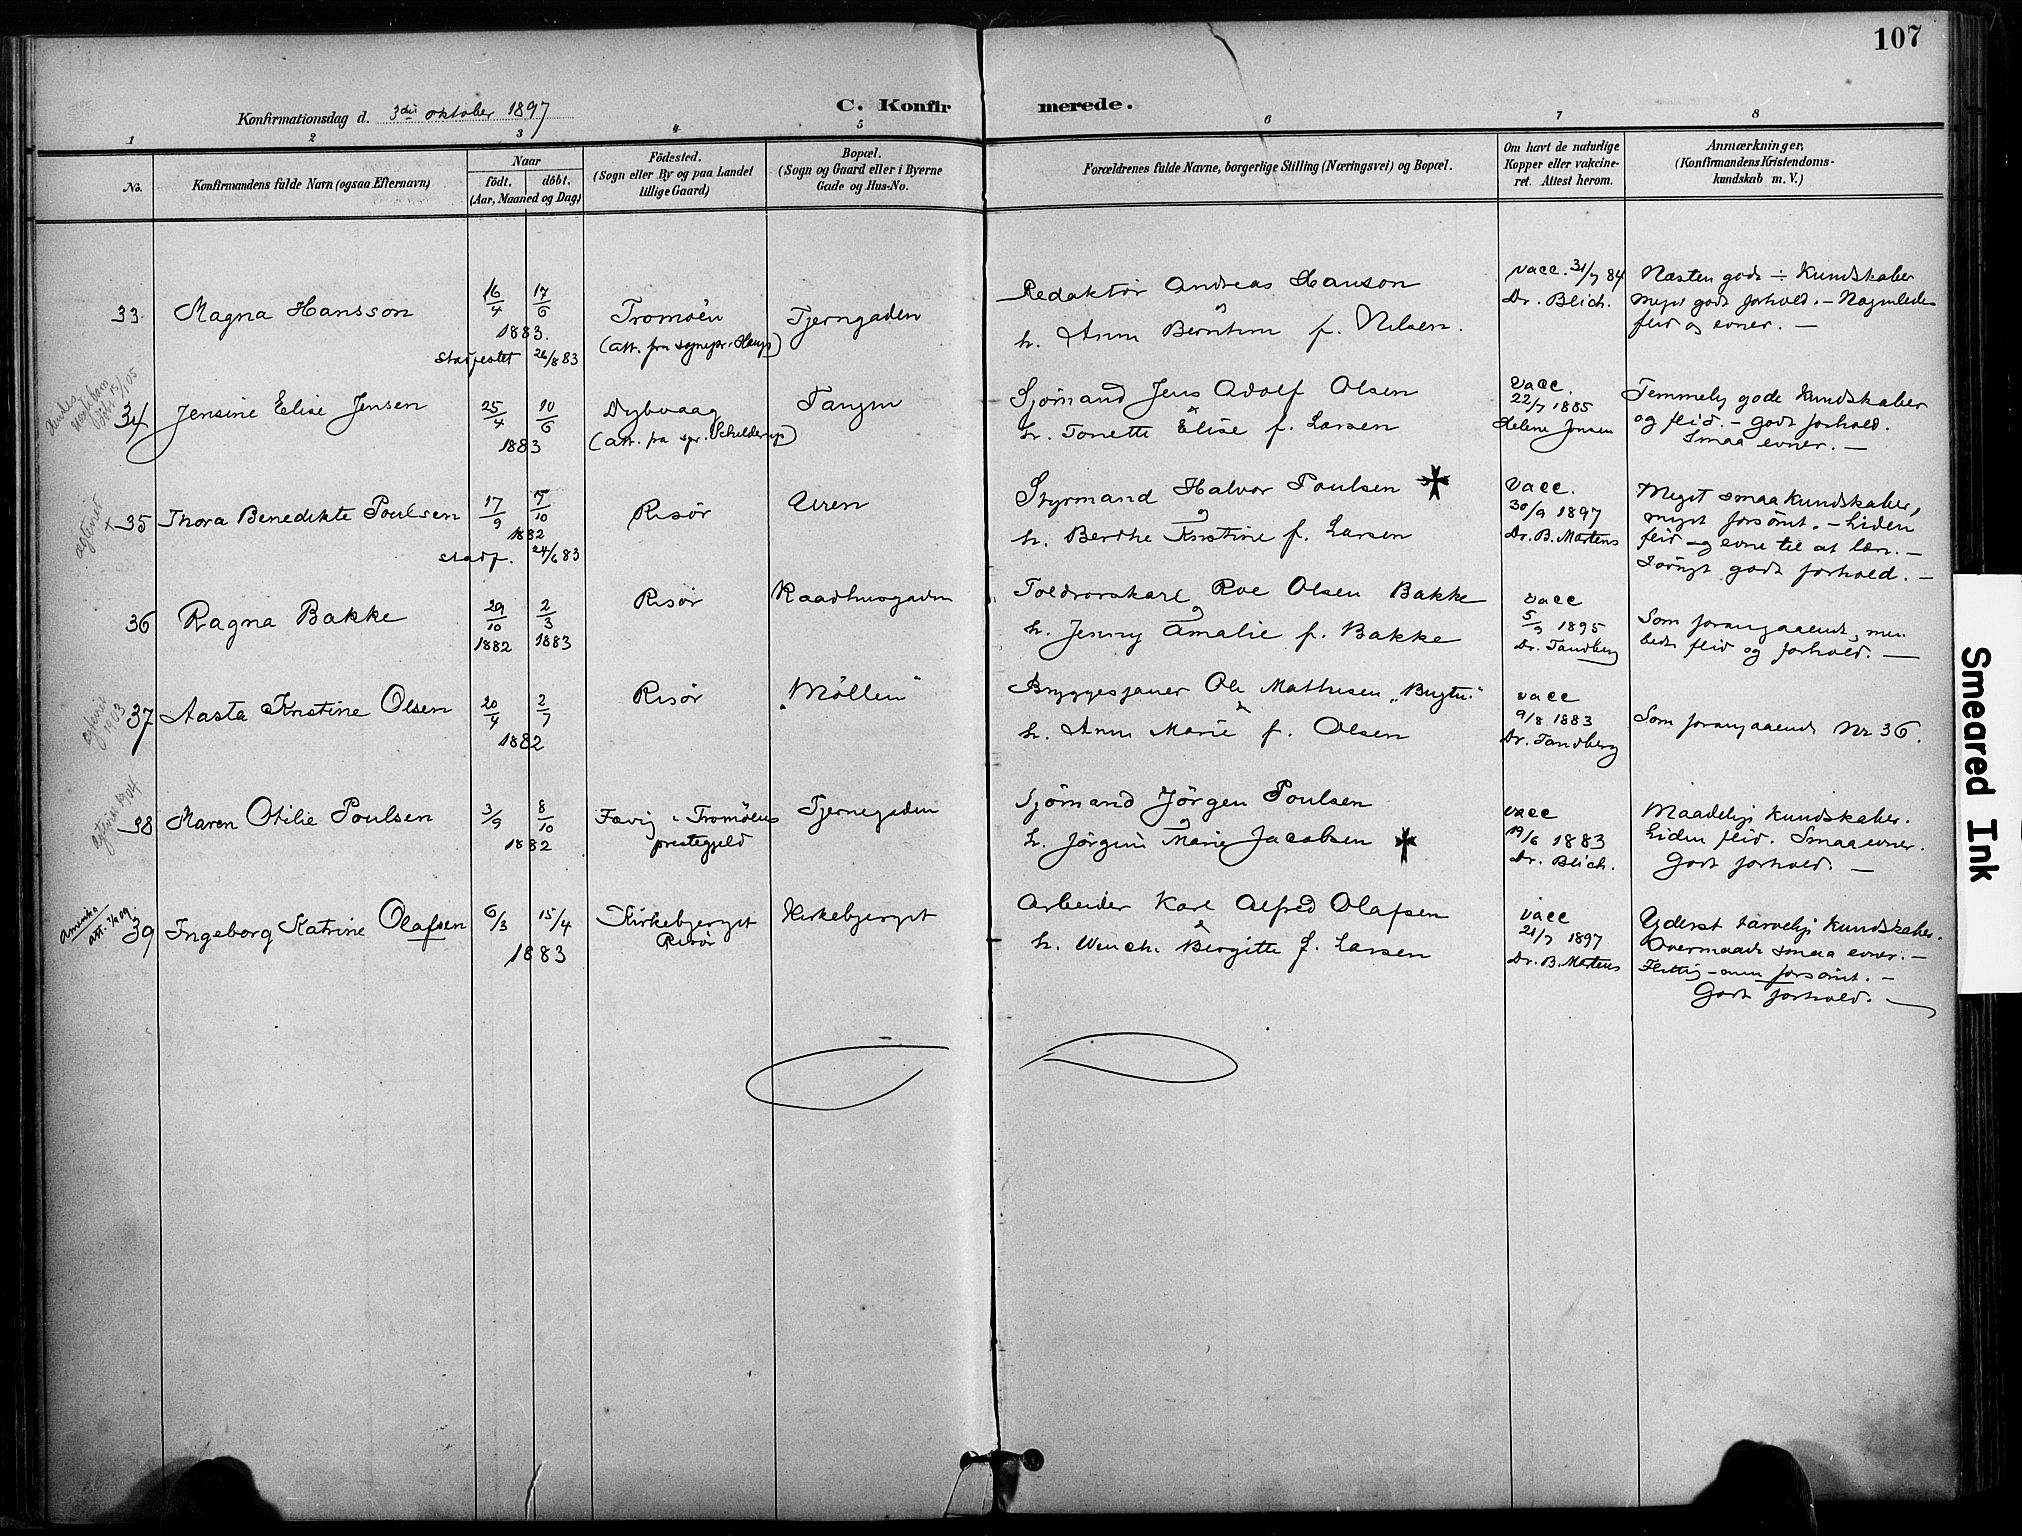 107
Konfirmationsdag d. 3die oktober 1897
C. Konfirmerede.
1 2 3 4 5 6 7 8
No.
Konfirmandens fulde Navn (ogsaa Efternavn)
Naar
født. døbt.
(Aar, Maaned og Dag)
Födested.
(Sogn eller By og paa Landet
tillige Gaard)
Bopæl.
(Sogn og Gaard eller i Byerne
Gade og Hus-No.
Forældrenes fulde Navne, borgerlige Stilling (Næringsvei) og Bopæl.
Om havt de naturlige
Kopper eller vakcine-
ret. Attest herom.
Anmærkninger,
(Konfirmandens Kristendoms-
kundskab m. V.)
33 Magna Hansson
16/4 17/6
1883.
stadfestet 26/8 83
Tromöen
(att. fra sognepr. Hauge)
Tjerngaden
Redaktör Andreas Hansson
&
h. Anna Berntine f. Nilsen.
vacc. 31/7 84
Dr. Blich.
Næsten gode ÷ Kundskaber
meget godt forhold. – Nogenlede
flid og evner. –
34 Jensine Elise Jensen
25/4 10/6
1883
Dybvaag
(att. fra spr. Schelderup)
Tangen
Sjömand Jens Adolf Olsen
&
h. Tonette Elise f. Larsen
vacc.
22/7 1885
Helene Jensen
Temmelig gode Kundskaber
og flid. – godt forhold.
Smaa evner. –
agteviet
+ 35 Thora Benedikte Poulsen
17/9 5/10
1882
stadf. 24/6 83
Risör
Uren
Styrmand Halvor Poulsen ✠
&
h. Berthe Kristine f. Larsen
Vacc.
30/9 1897
Dr. B. Martens
Meget smaa kundskaber,
meget forsömt. – Liden
flid og evne til at lære. –
Iövrigt godt forhold. –
36 Ragna Bakke
29/10 2/3
1882 1883
Risör
Raadhusgaden
Toldrorskarl Roe Olsen Bakke
&
h. Jenny Amalie f. Bakke
vacc
5/9 1895
Dr. Tandberg
Som forangaaende, men
bedre flid og forhold. –
agteviet
1903
37 Aasta Kristine Olsen
20/4 2/7
1882
Risör
"Möllen"
Bryggesjauer Ole Mathisen "Bugten"
&
h. Anne Marie f. Olsen
vacc
9/8 1883
Dr. Tandberg
Som forangaaende Nr 36.
agteviet 1904
38 Maren Otilie Poulsen
3/9 8/10
1882
Færvig i Tromöens
prestegjeld
Tjernegaden
Sjömand Jörgen Poulsen
&
h. Jörgine Marie Jacobsen ✠
vacc
19/6 1883
Dr. Blich.
Maadelige kundskaber.
Liden flid. Smaa evner.
Godt forhold. –
Amerika
att.
39 Ingeborg Katrine Olafsen
6/3 15/4
1883
Kirkebjerget
Risör
Kirkebjerget
Arbeider Karl Alfred Olafsen
&
h. Wench. Birgitte f. Larsen
vacc
21/7 1897
Dr. B. Martens
Yderst tarvelige kundskaber.
Overmaade smaa evner. –
Flittig – men forsömt. –
Godt forhold. –
Smeared Ink